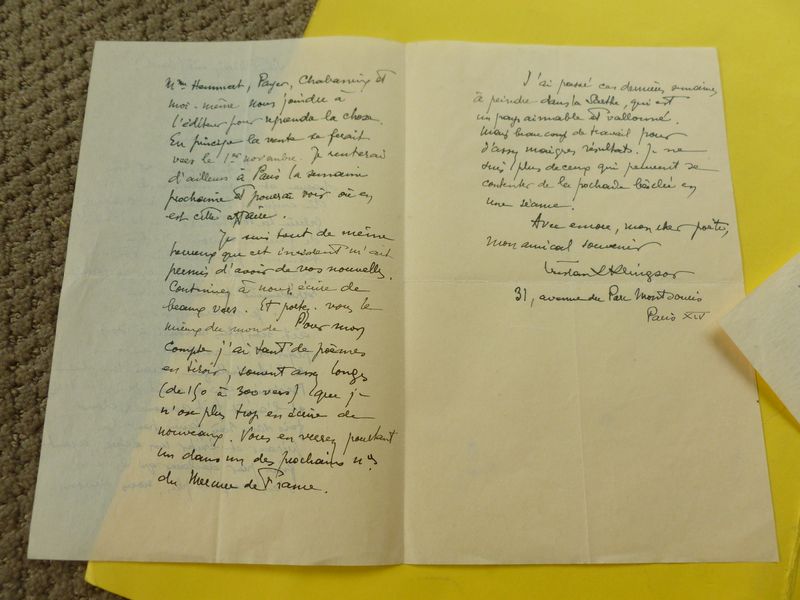 Mme Hommart, Payer, Chabaneix et
moi-même nous joindre à
l'éditeur pour reprendre la chose.
En principe la vente se ferait
vers le 1er novembre. Je rentrerai
d'ailleurs à Paris la semaine
prochaine et pourrai voir où en
est cette affaire.
Je suis tout de même
heureux que cet incident m'ait
permis d'avoir de vos nouvelles.
Continuez à nous écrire de
beaux vers. Et portez-vous le
mieux du monde Pour mon
compte j'ai tant de poèmes
en tiroir, souvent assez longs
(de 150 à 300 vers) que je
n'ose plus trop en écrire de
nouveaux. Vous en verrez pourtant
un dans un des prochains nos
du Mercure de France.
J'ai passé ces dernières semaines
à peindre dans la Sarthe, qui est
un pays aimable et vallonné.
Mais beaucoup de travail pour
d'assez maigres résultats. Je ne
suis plus de ceux qui peuvent se
contenter de la pochade bâclée en
une séance.
Avec encore, mon cher poète,
mon amical souvenir
Tristan Klingsor
31, avenue du Parc Montsouris
Paris XIV